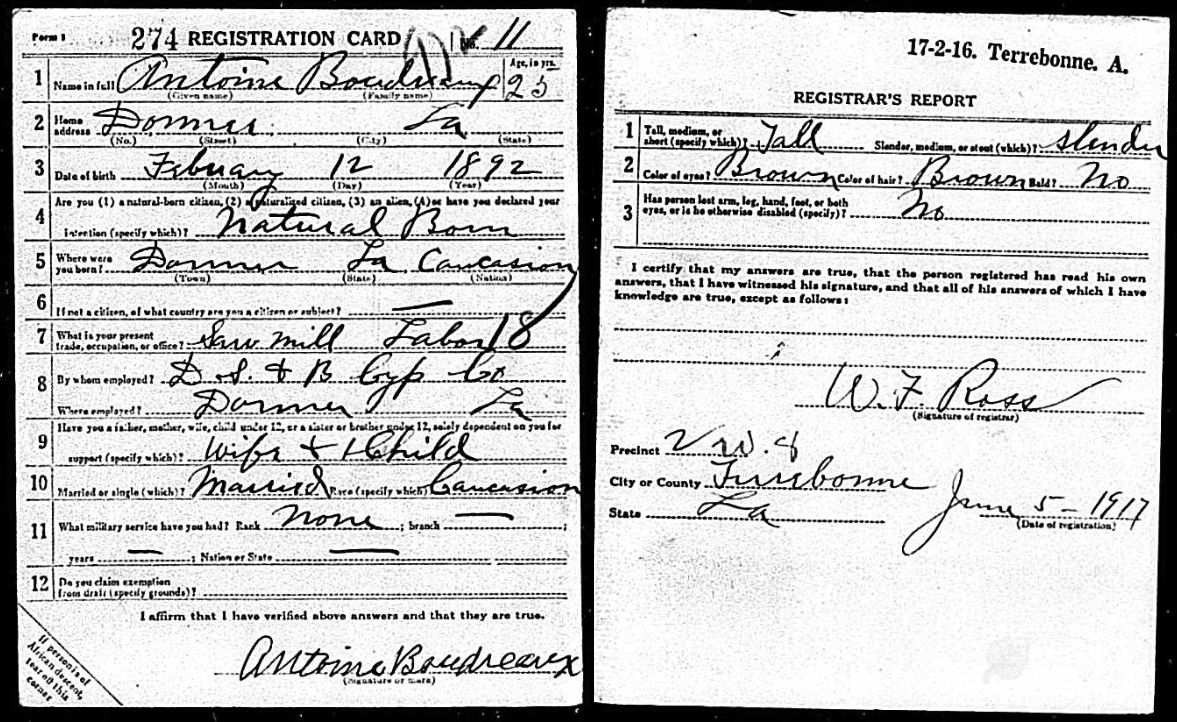 Form 1 274 REGISTRATION CARD No. 11
1 Name in full Antoine Boudreaux Age, in yrs. 25
(Given name) (Family name)
2 Home address Donner La
(No.) (Street) (City) (State)
3 Date of birth Febuary 12 1892
(Month) (Day) (Year)
4 Are you (1) a natural-born citizen, (2) a naturalized citizen, (3) an alien, (4) or have you declared your
intention (specify which)? Natural Born
5 Where were you born? Donner La Caucasion
(Town) (State) (Nation)
6 If not a citizen, of what country are you a citizen or subject? —
7 What is your present trade, occupation, or office? Saw mill Labor 18
8 By whom employed? D S. & B Cyp Co
Where employed? Donner La
9 Have you a father, mother, wife, child under 12, or a sister or brother under 12, solely dependent on you for
support (specify which)? Wife + 1 Child
10 Married or single (which)? Married Race (specify which) Caucasion
11 What military service have you had? Rank none ; branch — ;
years — ; Nation or State —
12 Do you claim exemption from draft (specify grounds)?
I affirm that I have verified above answers and that they are true.
Antoine Boudreaux
(Signature or mark)
If person is of
African descent,
tear off this
corner
17-2-16. Terrebonne. A.
REGISTRAR'S REPORT
1 Tall, medium, or short (specify which)? Tall Slender, medium, or stout (which)? Slender
2 Color of eyes? Brown Color of hair? Brown Bald? No
3 Has person lost arm, leg, hand, foot, or both eyes, or is he otherwise disabled (specify)? No
I certify that my answers are true, that the person registered has read his own
answers, that I have witnessed his signature, and that all of his answers of which I have
knowledge are true, except as follows:
W. F. Ross
(Signature of registrar)
Precinct 2 W. 8
City or County Terrebonne
State La
June 5 - 1917
(Date of registration)